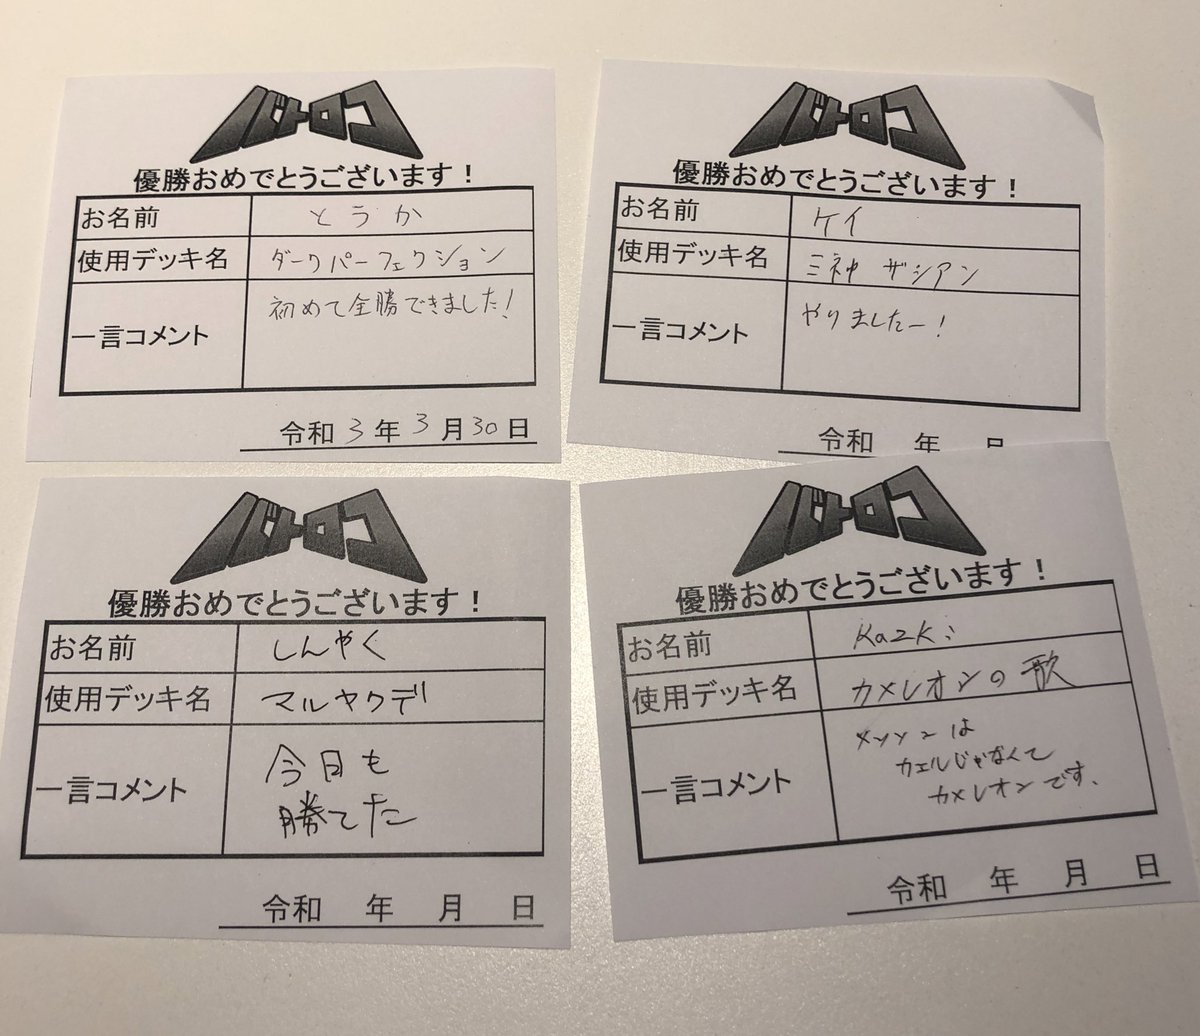 バトロコ
優勝おめでとうございます！
お名前 とうか
使用デッキ名 ダークパーフェクション
一言コメント 初めて全勝できました！
令和3年3月30日
バトロコ
優勝おめでとうございます！
お名前 ケイ
使用デッキ名 三神 ザシアン
一言コメント やりましたー！
令和 年 月
バトロコ
優勝おめでとうございます！
お名前 しんやく
使用デッキ名 マルヤクデ
一言コメント 今日も
勝てた
令和 年 月 日
バトロコ
優勝おめでとうございます！
お名前 Kazki
使用デッキ名 カメレオンの歌
一言コメント は
カエルじゃなくて
カメレオンです、
令和 年 月 日